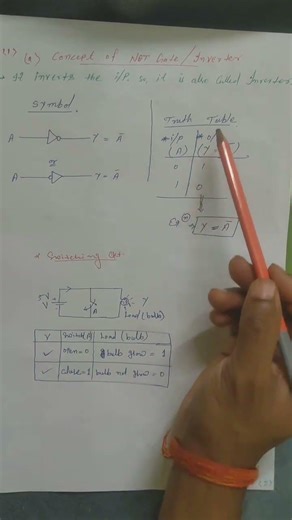 (a) Concept of NOT Gate/Inverter
It inverts the i/p. so it is also called Inverter.
Symbol
A Y = Ā
A Y = Ā
Truth Table
i/p
(A)
0 1
1 0
Y = Ā
Switching
5V
V
A
Y
Load (bulb)
Load (bulb)
Open=0 bulb glow = 1
close=1 bulb not glow = 0